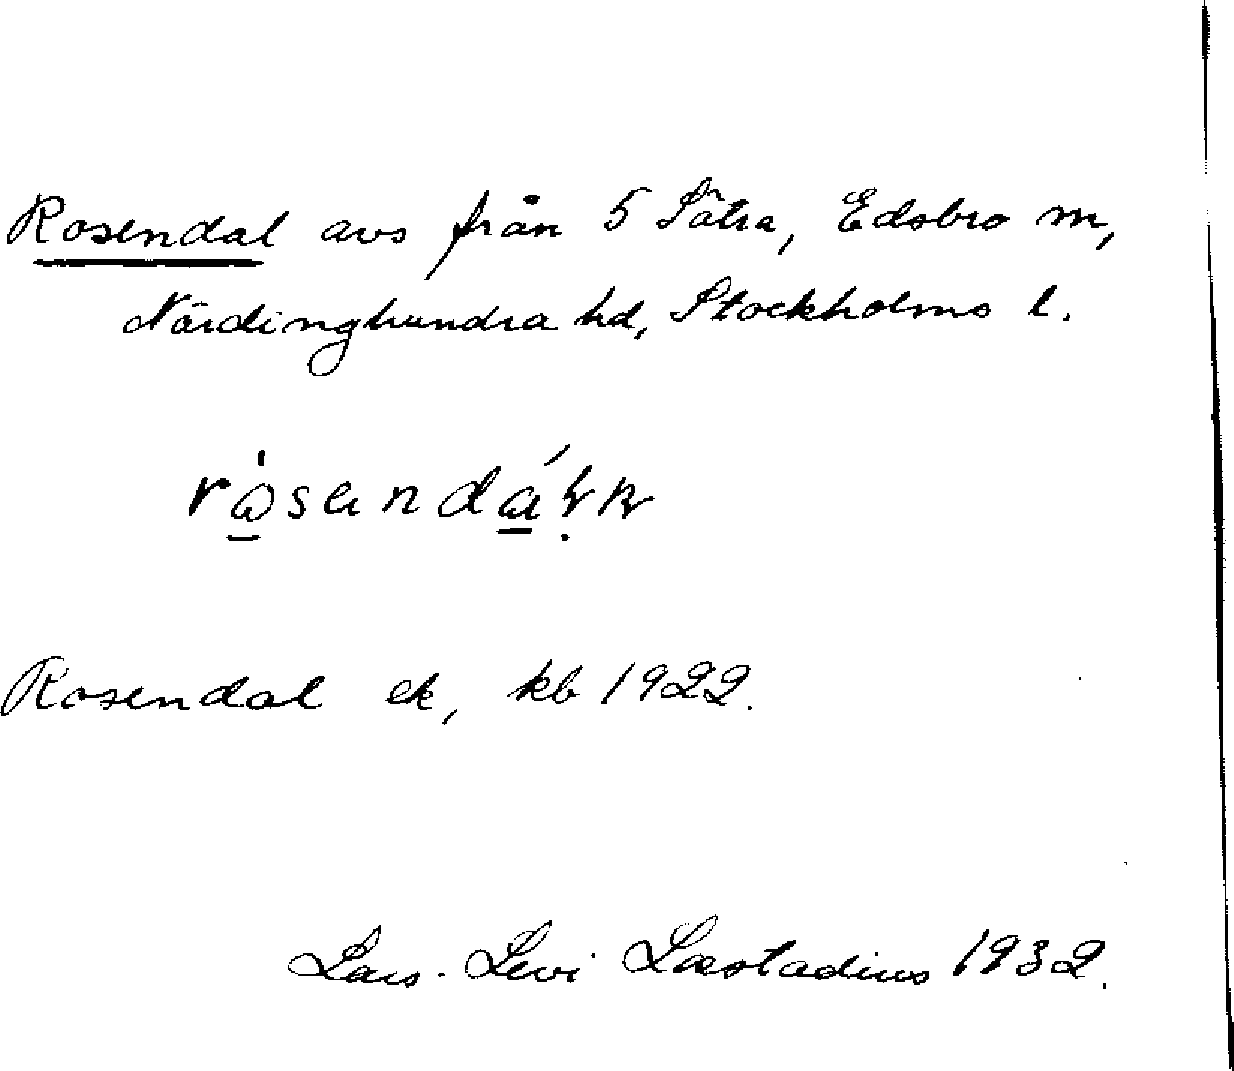 Rosendal avs från 5 Sätra, Edsbro sn,
Närdinghundra hd, Stockholms l.
Rosendal ek, kb 1922.
Lars-Levi Læstadius 1932.